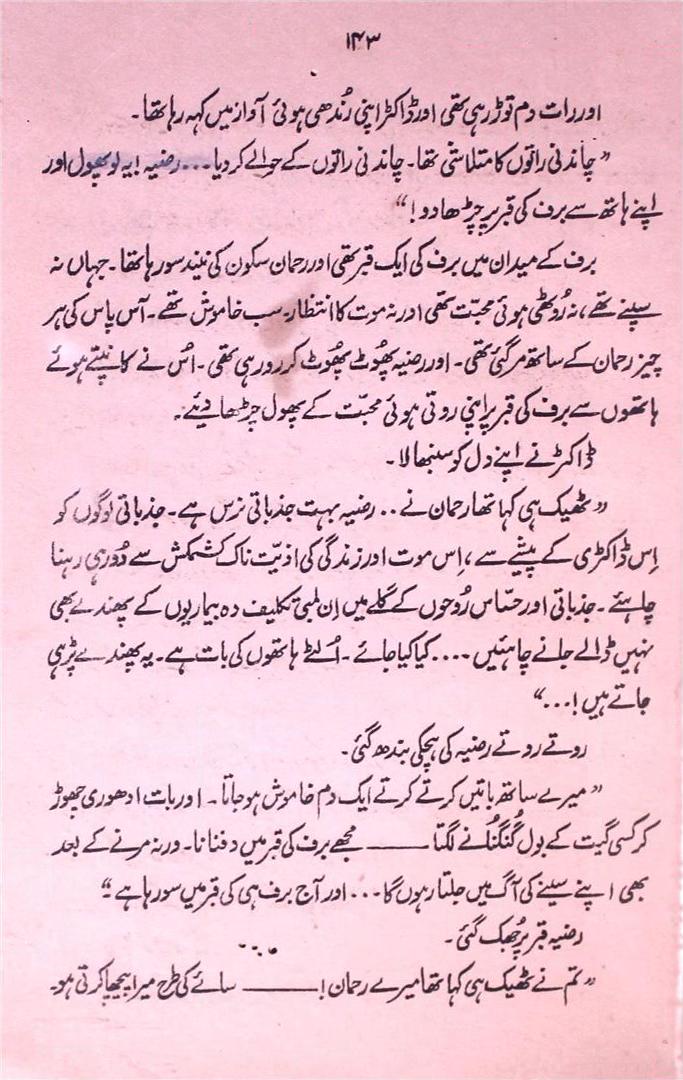 ۱۴۳
اور رات دم توڑ رہی تھی اور ڈاکٹر اپنی رُندھی ہوئی آواز میں کہہ رہا تھا۔
”چاندنی راتوں کا متلاشی تھا۔ چاندنی راتوں کے حوالے کر دیا... رضیہ! یہ لو پھول اور
اپنے ہاتھ سے برف کی قبر پر چڑھا دو!“
برف کے میدان میں برف کی ایک قبر تھی اور رحمان سکون کی نیند سو رہا تھا۔ جہاں نہ
سپنے تھے، نہ رُوٹھی ہوئی محبّت تھی اور نہ موت کا انتظار۔ سب خاموش تھے۔ آس پاس کی ہر
چیز رحمان کے ساتھ مر گئی تھی۔ اور رضیہ پھُوٹ پھُوٹ کر رو رہی تھی۔ اُس نے کانپتے ہوئے
ہاتھوں سے برف کی قبر پر اپنی روتی ہوئی محبّت کے پھول چڑھا دیئے۔
ڈاکٹر نے اپنے دل کو سنبھالا۔
”ٹھیک ہی کہا تھا رحمان نے.. رضیہ بہت جذباتی نرس ہے۔ جذباتی لوگوں کو
اِس ڈاکٹری کے پیشے سے، اِس موت اور زندگی کی اذیّت ناک کشمکش سے دُور ہی رہنا
چاہئے۔ جذباتی اور حسّاس رُوحوں کے گلے میں اِن لمبی تکلیف دہ بیماریوں کے پھندے بھی
نہیں ڈالے جانے چاہئیں .... کیا کیا جائے۔ اُلٹے ہاتھوں کی بات ہے۔ یہ پھندے پڑ ہی
جاتے ہیں!...“
روتے روتے رضیہ کی ہچکی بندھ گئی۔
”میرے ساتھ باتیں کرتے کرتے ایک دم خاموش ہو جاتا۔ اور بات ادھوری چھوڑ
کر کسی گیت کے بول گُنگُنانے لگتا ——— مجھے برف کی قبر میں دفنانا۔ ورنہ مرنے کے بعد
بھی اپنے سینے کی آگ میں جلتا رہوں گا... اور آج برف ہی کی قبر میں سو رہا ہے۔“
رضیہ قبر پر جُھک گئی۔
”تم نے ٹھیک ہی کہا تھا میرے رحمان! ——— سائے کی طرح میرا پیچھا کرتی ہو۔